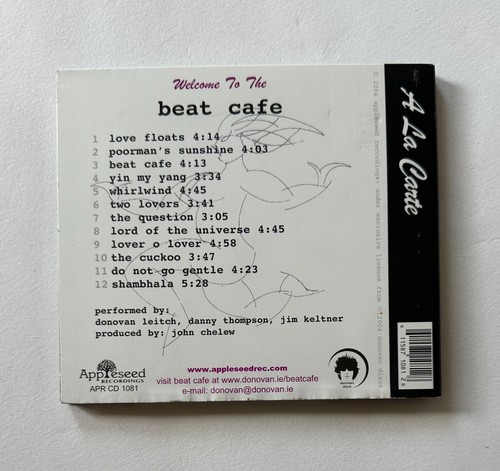 Welcome To The
beat cafe
1 love floats 4:14
2 poorman's sunshine 4:03
3 beat cafe 4:13
4 yin my yang 3:34
5 whirlwind 4:45
6 two lovers 3:41
7 the question 3:05
8 lord of the universe 4:45
9 lover o lover 4:58
10 the cuckoo 3:47
11 do not go gentle 4:23
12 shambhala 5:28
performed by:
donovan leitch, danny thompson, jim keltner
produced by: john chelew
Appleseed
RECORDINGS
APR CD 1081
www.appleseedrec.com
visit beat cafe at www.donovan.ie/beatcafe
e-mail: donovan@donovan.ie
A La Carte